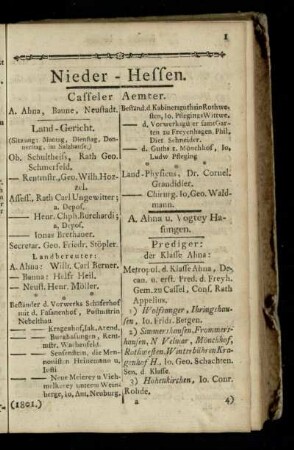 1
Nieder-Hessen.
Casseler Aemter.
A. Ahna, Baune, Neustadt.
Land-Gericht.
(Sitzung: Montag, Dienstag, Donnerstag, im Salzhause.)
Ob. Schultheis, Rath Geo.
Schmerfeld.
— Rentenstr., Geo. Wilh.
Assess. Rath Carl Ungewitter;
a. Depos.
— Henr. Chph. Burchardi;
a. Depos.
— Ionas Beethauer.
Secretar. Geo. Friedr. Stöpler.
Landbereuter:
A. Ahna: Wilh. Carl Berner.
— Bauna: Hilf Heil.
— Neust. Henr. Möller.
Beständer d. Vorwerks Schäferhof
mit d. Fasanenhof,
— Kragenhof, Iak. Arend,
— Burghasungen,
— Sensenstein, die
— Neue Meierey u. Viehmelkerey unterm Weinberge, io, Amt, Neuburg.
(1801.)
Beständ. d. Kabinetsguths in Rothwesten, Io. Pfleging's Witwe.
— d. Vorwerksgüter samt Garten zu Freyenhagen Phil.
Diet. Schneider.
— d. Guths z. Mönchhof, Io.
Ludw Pfleging
Land-Physicus, Dr. Cornel.
Grandidier.
— Chirurg. Io. Geo. Waldmann.
A. Ahna u. Vogtey Hasungen.
Prediger:
der Klasse Ahna:
Metropol. d. Klasse Ahna, Decan. u. erst. Pred. d. Freyh.
Gem. zu Cassel, Cons. Rath
Appelius.
1) Wolfsanger, Ihringshausen, Io. Fridr. Bergen.
2) Simmershausen, Frommershausen, N Velmar, Mönchhof,
Rothwesten, Winterbühren Kragenhof H., Io. Geo. Schachten.
Sen. d. Klasse.
3) Hohenkirchen, Io. Conr.
Rohde.
a
4)